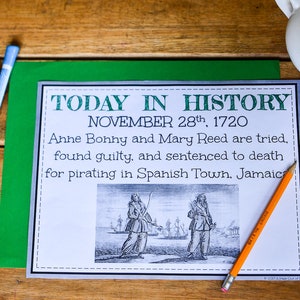 TODAY IN HISTORY
NOVEMBER 28th, 1720
Anne Bonny and Mary Reed are tried,
found guilty, and sentenced to death
for pirating in Spanish Town, Jamaica